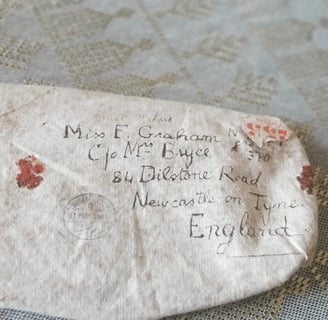 Miss F. Graham
C/o Mrs Bryce
84 Dilstone Road
Newcastle on Tyne.
England